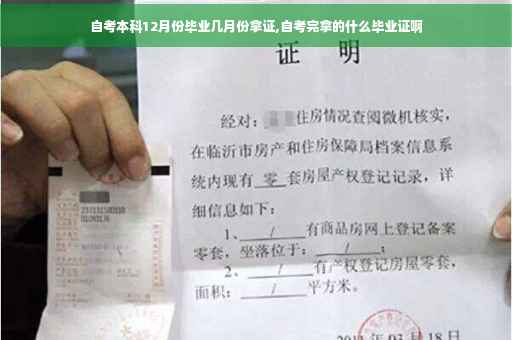 自考本科12月份毕业几月份拿证,自考完拿的什么毕业证啊
证 明
经对: 住房情况查阅微机核实,
在临沂市房产和住房保障局档案信息系
统内现有 零 套房屋产权登记记录, 详
细信息如下:
1、 / 有商品房网上登记备案
零套, 坐落位于: / ;
2、 / 有产权登记房屋零套,
面积: / 平方米。
03月18日